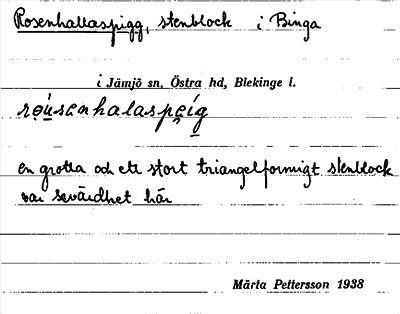 Rosenhallaspigg, stenblock i Binga
i Jämjö sn, Östra hd, Blekinge l.
ro̤u̱senhalaspe̤íg
en grotta och ett stort triangelformigt stenblock
var sevärdhet här
Märta Pettersson 1938